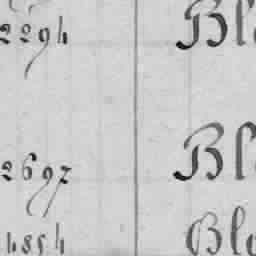 2294 Bl
2697 Bl
4854 Bl